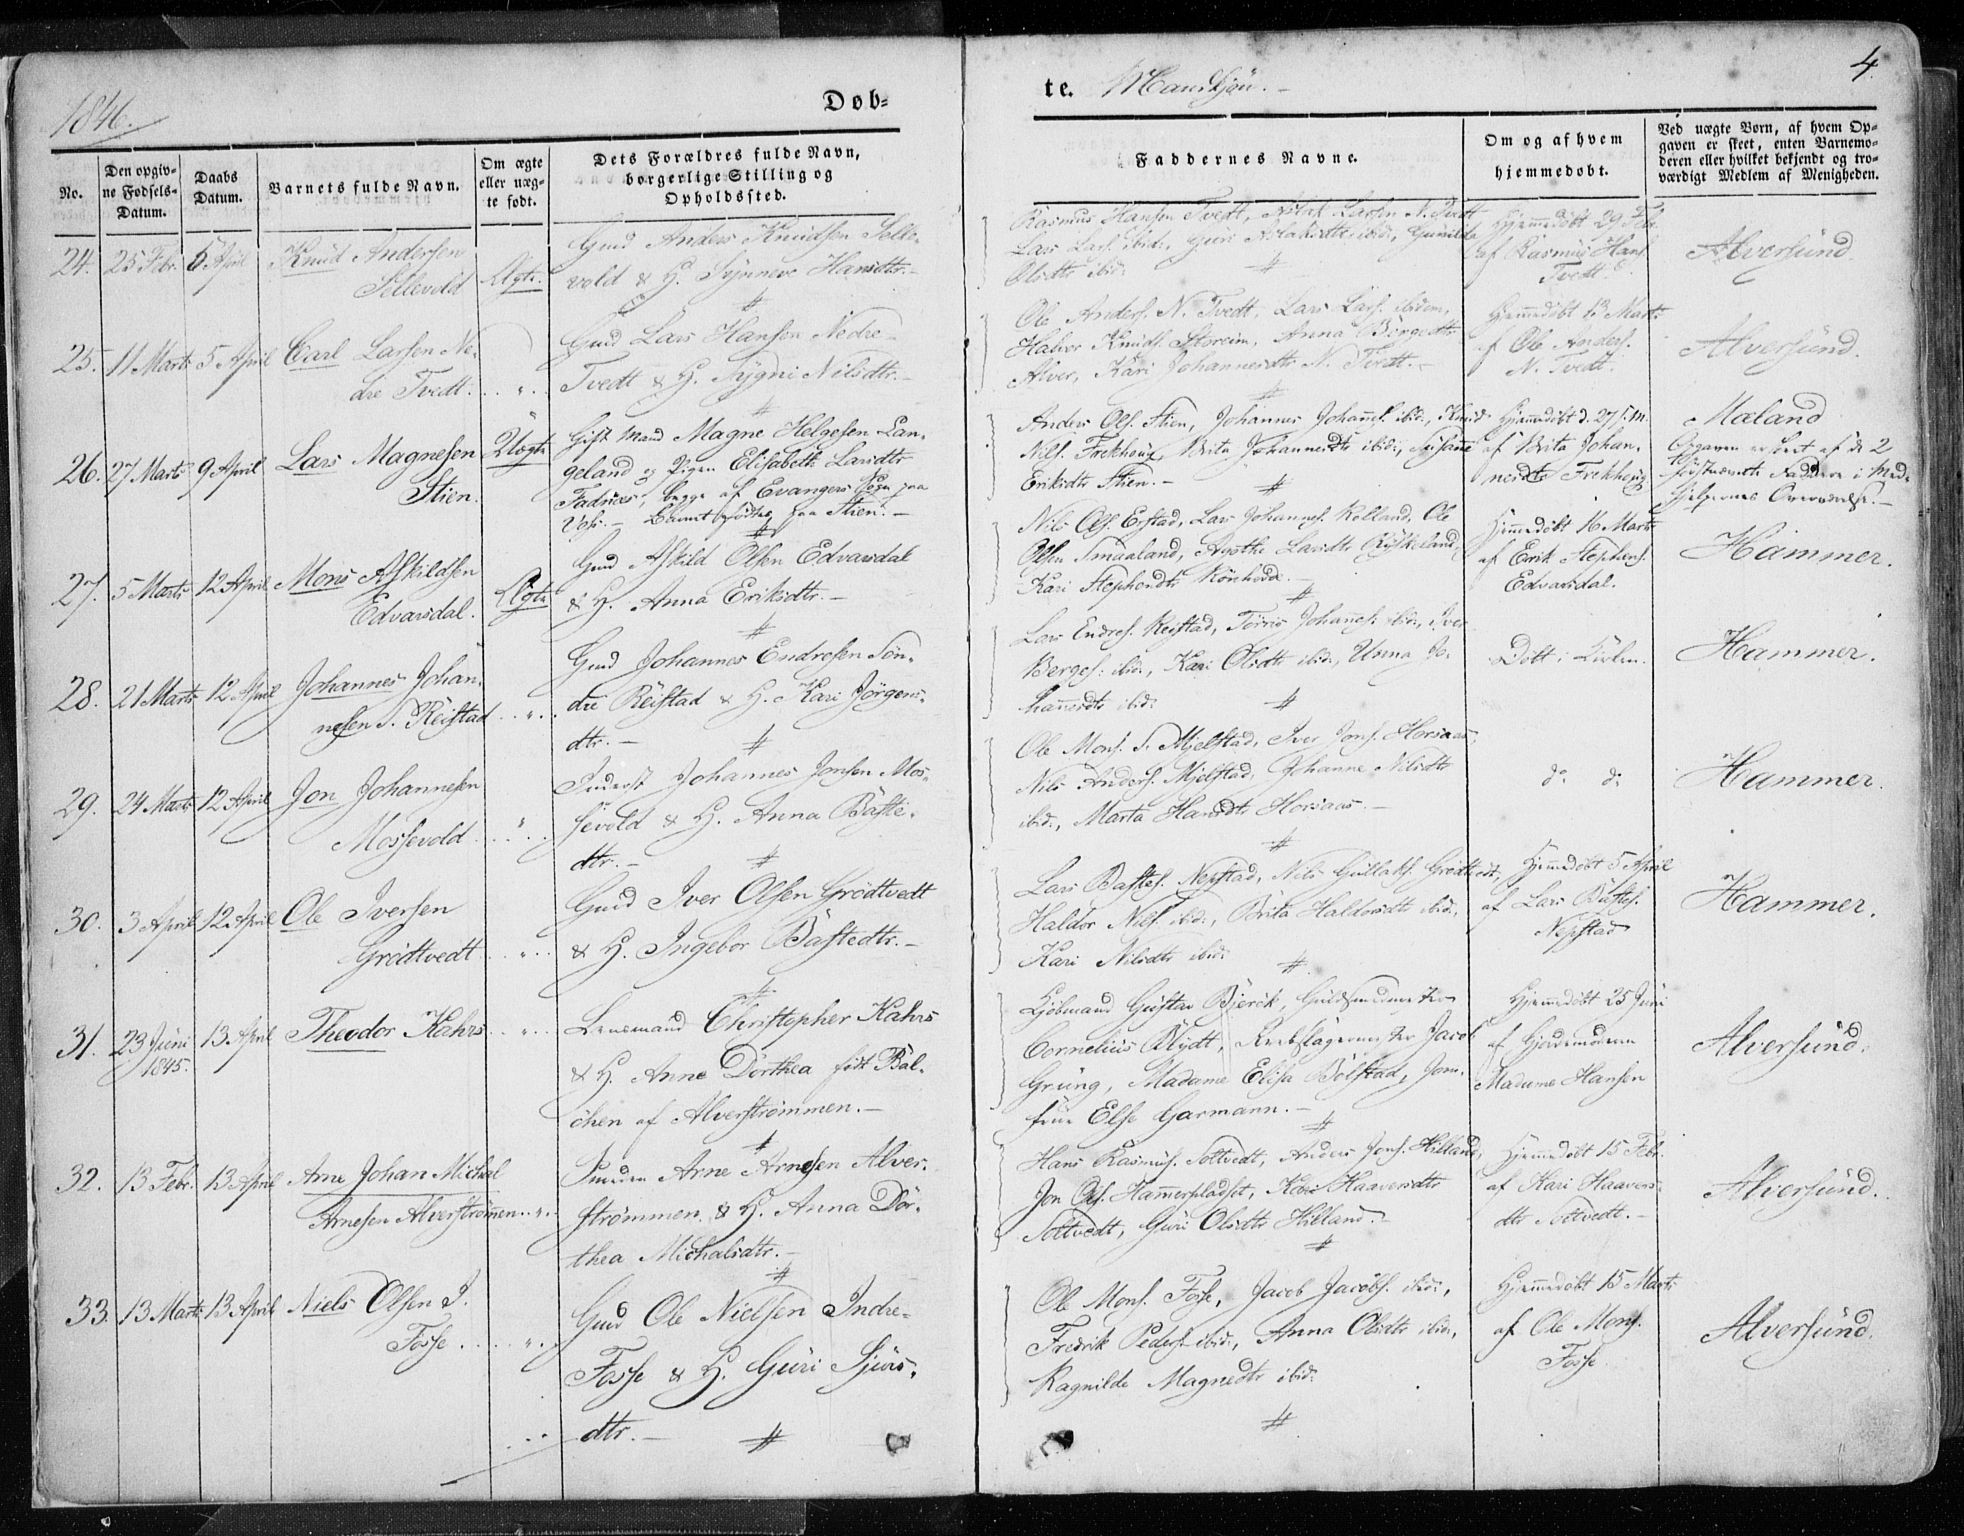 1846.
Døb-
te. Mandkjøn.
4
No.
Den opgiv-
ne Fødsels-
Datum.
Daabs
Datum.
Barnets fulde Navn.
Om ægte
eller uæg-
te født.
Dets Forældres fulde Navn,
borgerlige Stilling og
Opholdssted.
Faddernes Navne.
Om og af hvem
hjemmedøbt.
Ved uægte Børn, af hvem Op-
gaven er skeet, enten Barnemo-
deren eller hvilket bekjendt og tro-
værdigt Medlem af Menigheden.
24. 25 Febr. 5 April Knud Andersen
Sellevold Ægte.
Gmd Anders Knudsen Selle-
vold & H. Synneve Hansdtr.
Rasmus Hansen Tvedt, Aslak Larsen N. Tvedt
Lars Lars. ibid:, Guri Aslaksdtr ibid:, Gunilda
Olsdtr ibid:
Hjemmedøbt 29 Febr.
af Rasmus Hans.
Tvedt
Alversund.
25. 11 Marts 5 April Carl Larsen Ne-
dre Tvedt. . . " . .
Gmd Lars Hansen Nedre-
Tvedt & H. Sygni Nilsdtr.
Ole Anders. N. Tvedt, Lars Lars. ibidem,
Halvor Knuds. Storeim, Anna Børgesdtr
Alver, Kari Johannesdtr N. Tvedt.
Hjemmedøbt 13 Marts
af Ole Anders.
N. Tvedt.
Alversund.
26. 27 Marts 9 April Lars Magnesen
Stien. Uægte
Gift Mand Magne Helgesen Lan-
geland og Pigen Elisabeth Larsdtr
Fadnæs, begge af Evangers Sogn paa
Vos. Barnet født paa Stien.
Anders Ols. Stien, Johannes Johans. ibid:, Knud
Nils. Frekhoug, Brita Johannesdtr ibid:, Susanne
Eriksdtr Stien.
Hjemmedøbt d. 27 s. M.
af Brita Johan-
nesdtr Frekhoug
Mæland
Opgaven er skeet af de 2
førstnævnte Faddere i Med-
hjelpernes Overværelse.
27. 5 Marts 12 April Mons Askildsen
Edvarsdal. Ægte
Gmd Askild Olsen Edvarsdal
& H. Anna Eriksdtr.
Nils Ols. Erstad, Lars Johannes. Rolland, Ole
Olsen Smaaland, Agathe Larsdtr
Kari Stephensdtr Rønhovde.
Hjemmedøbt 16 Marts
af Erik Stephens.
Edvarsdal.
Hammer.
28. 21 Marts 12 April Johannes Johan-
nesen S. Reistad . . " . .
Gmd Johannes Endresen Søn-
dre Reistad & H. Kari Jørgens-
dtr.
Lars Endres. Reistad, Johannes. ibid:, Iver
Berges. ibid:, Kari Olsdtr ibid:, Unna Jo-
hannesdtr ibid:
Døbt i Kirken.
Hammer.
29. 24 Marts 12 April Jon Johannesen
Mossevold . . " . .
Inderst Johannes Jonsen Mos-
sevold & H. Anna Baste-
dtr.
Ole Mons. S. Mjelstad, Iver Jons. Horsaas,
Nils Anders. Mjelstad, Johanne Nilsdtr
ibid:, Marta Hansdtr Horsaas.
do do
Hammer.
30. 3 April 12 April Ole Iversen
Grødtvedt . . " . .
Gmd Iver Olsen Grødtvedt
& H. Ingebor Bastedtr.
Lars Bastes. Nepstad, Nils Gullaks. Grødtvedt,
Haldor Nils. ibid:, Brita Haldorsdtr ibid:,
Kari Nilsdtr ibid:
Hjemmedøbt 5 April
af Lars Bastes.
Nepstad
Hammer.
31. 23 Juni
1845. 13. April Theodor Kahrs . . " . .
Lensmand Christopher Kahrs
& H. Anne Dorthea født Bal-
chen af Alverstrømmen.
Kjøbmand Gustav Bjerck, Guldsmedmester
Cornelius Blydt, Jacob
Grung, Madame Elisa Bolstad, Jom-
frue Else Garmann.
Hjemmedøbt 25 Juni
af Gjordemoderen
Madame Hansen
Alversund.
32. 13 Febr. 13 April Arne Johan Michal
Arnesen Alverstrømmen . . " . .
Smeden Arne Arnesen Alver-
strømmen & H. Anna Dor-
thea Michalsdtr.
Hans Rasmus. Soltvedt, Anders Jons. Hilland,
Jon Ols. Hammerpladset, Kari Haaversdtr
Soltvedt, Guri Olsdtr Hilland.
Hjemmedøbt 15 Febr.
af Kari Haavers-
dtr Soltvedt.
Alversund.
33. 13 Marts 13 April Niels Olsen I.
Fosse . . . " . .
Gmd Ole Nielsen Indre-
Fosse & H. Guri Sjurs-
dtr.
Ole Mons. Fosse, Jacob Jacobs. ibid:,
Fredrik Peders. ibid:, Anna Olsdtr ibid:,
Ragnilde Magnedtr ibid:
Hjemmedøbt 15 Marts
af Ole Mons.
Fosse
Alversund.